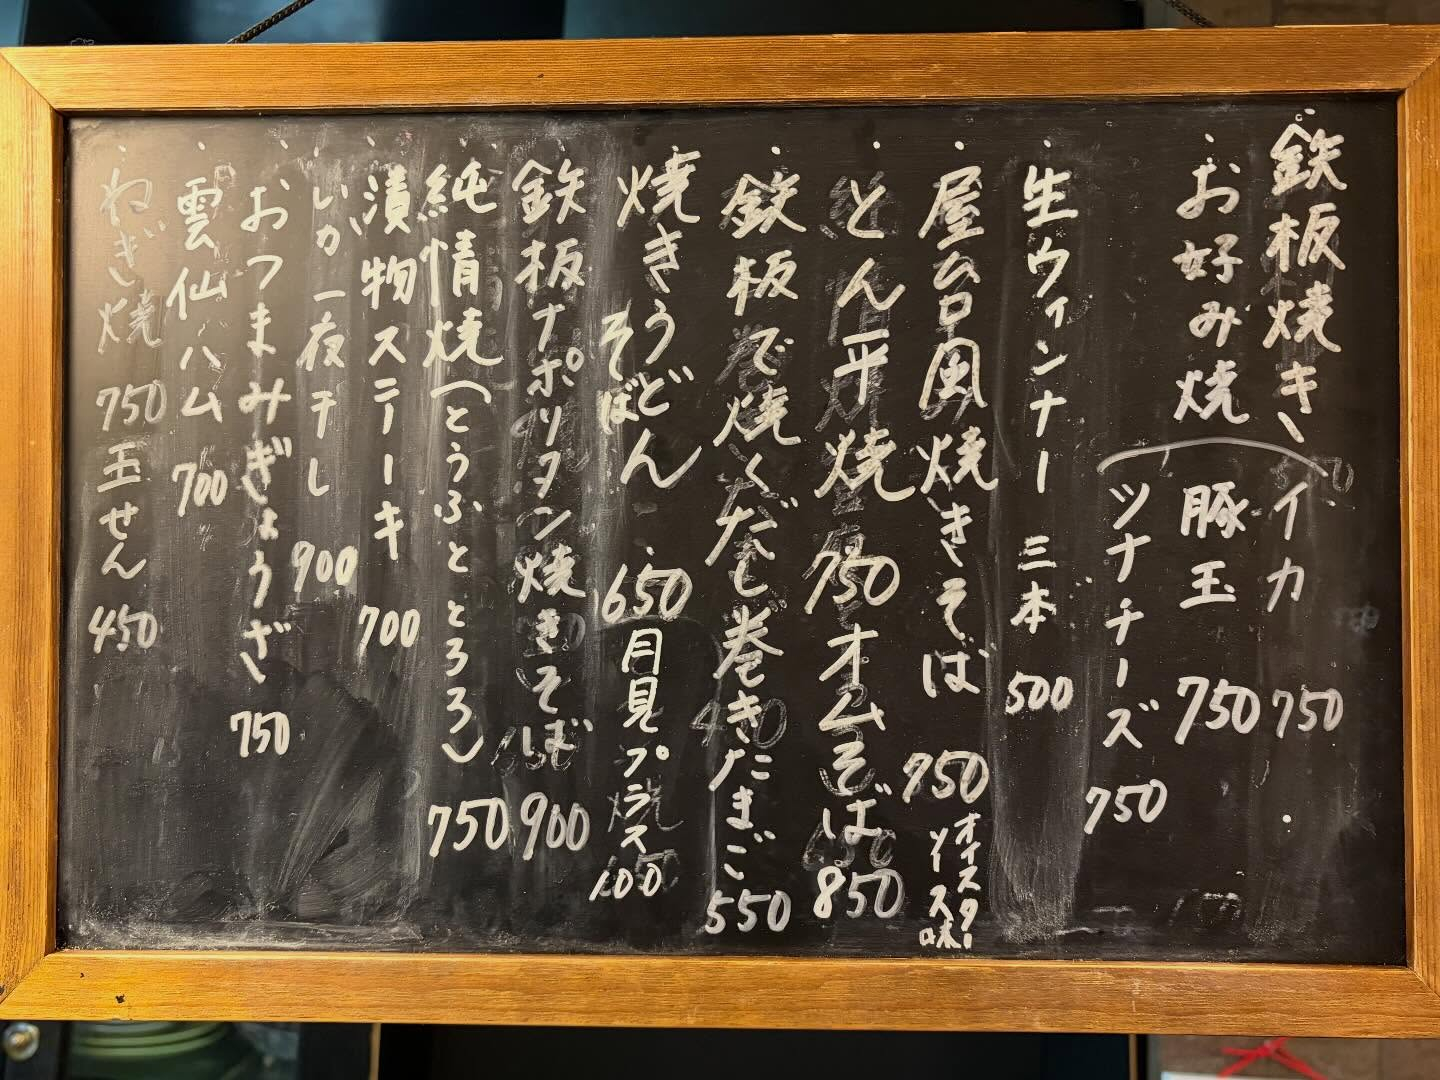 ・鉄板焼き イカ 750
・お好み焼 豚玉 750
ツナチーズ 750
・生ウィンナー 三本 500
・屋台風焼きそば 750 オイスターソース味
・とん平焼 750 オムそば 850
・鉄板で焼くだし巻きたまご 550
・焼きうどん そば 650 月見プラス100
・鉄板ナポリタン焼きそば 900
・純情焼(とうふととろろ) 750
・漬物ステーキ 700
・いか一夜干し 900
・おつまみぎょうざ 750
・雲仙ハム 700
・ねぎ焼 750 玉せん 450